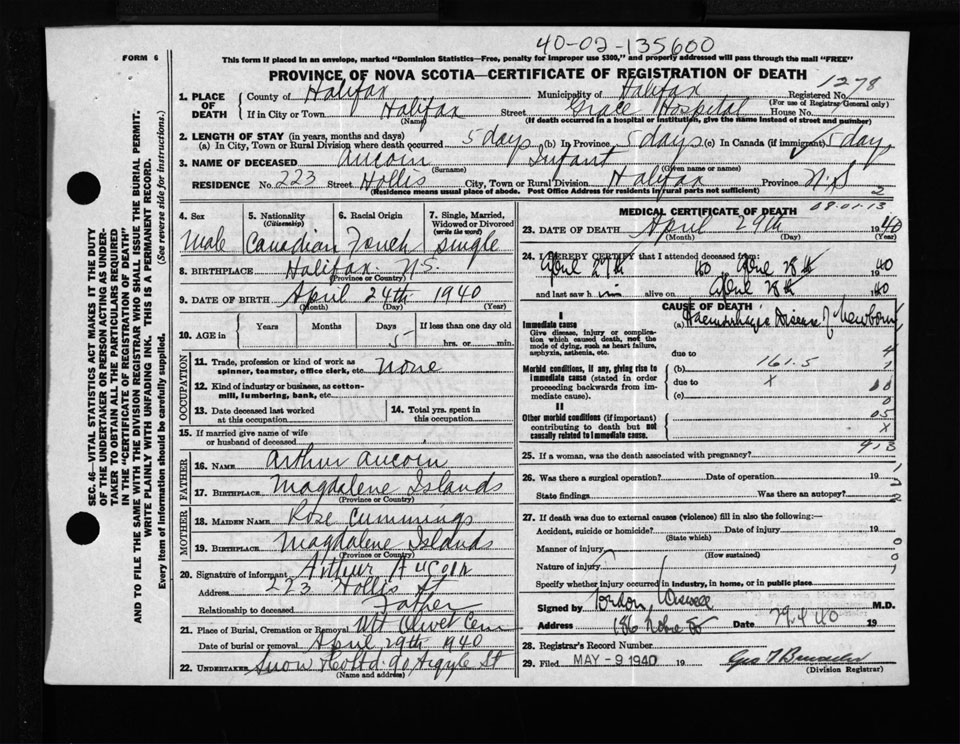 40-02-135600
FORM 6
This form if placed in an envelope, marked "Dominion Statistics—Free, penalty for improper use $300," and properly addressed will pass through the mail "FREE"
PROVINCE OF NOVA SCOTIA—CERTIFICATE OF REGISTRATION OF DEATH
1278
1. PLACE OF DEATH
County of Halifax Municipality of Halifax Registered No.
(For use of Registrar General only)
If in City or Town Halifax Street Grace Hospital House No.
(Name) (If death occurred in a hospital or institution, give the name instead of street and number)
2. LENGTH OF STAY (in years, months and days)
(a) In City, Town or Rural Division where death occurred 5 days (b) In Province 5 days (c) In Canada (if immigrant) 5 days
3. NAME OF DECEASED Aucoin Infant
(Surname) (Given name or names)
RESIDENCE No. 223 Street Hollis City, Town or Rural Division Halifax Province N.S
(Residence means usual place of abode. Post Office Address for residents in rural parts not sufficient) 2
SEC. 46—VITAL STATISTICS ACT MAKES IT THE DUTY
OF THE UNDERTAKER OR PERSON ACTING AS UNDER-
TAKER TO OBTAIN ALL THE PARTICULARS REQUIRED
IN THE "CERTIFICATE OF REGISTRATION OF DEATH"
AND TO FILE THE SAME WITH THE DIVISION REGISTRAR WHO SHALL ISSUE THE BURIAL PERMIT.
WRITE PLAINLY WITH UNFADING INK. THIS IS A PERMANENT RECORD.
Every item of information should be carefully supplied. (See reverse side for instructions.)
4. Sex
Male
5. Nationality
(Citizenship)
Canadian
6. Racial Origin
French
7. Single, Married,
Widowed or Divorced
(write the word)
Single
8. BIRTHPLACE Halifax N.S.
(Province or Country)
9. DATE OF BIRTH April 24th 1940
(Month) (Day) (Year)
10. AGE in
Years Months Days If less than one day old
5 hrs. or min.
OCCUPATION
11. Trade, profession or kind of work as
spinner, teamster, office clerk, etc. None
12. Kind of industry or business, as cotton-
mill, lumbering, bank, etc.
13. Date deceased last worked
at this occupation
14. Total yrs. spent in
this occupation
15. If married give name of wife
or husband of deceased
FATHER
16. NAME Arthur Aucoin
17. BIRTHPLACE Magdalene Islands
(Province or Country)
MOTHER
18. MAIDEN NAME Rose Cummings
19. BIRTHPLACE Magdalene Islands
(Province or Country)
20. Signature of informant Arthur Aucoin
Address 223 Hollis St
Relationship to deceased Father
21. Place of Burial, Cremation or Removal Mt Olivet Cem
Date of burial or removal April 29th 1940
22. UNDERTAKER Snow & Co Ltd. 90 Argyle St
(Name and address)
MEDICAL CERTIFICATE OF DEATH
08-01-13
23. DATE OF DEATH April 29th 1940
(Month) (Day) (Year)
24. I HEREBY CERTIFY that I attended deceased from:
April 27th to April 28th 1940
and last saw him alive on April 28th 1940
CAUSE OF DEATH
I
Immediate cause
Give disease, injury or complica-
tion which caused death, not the
mode of dying, such as heart failure,
asphyxia, asthenia, etc.
(a) Haemorrhagic Disease of Newborn
due to
4
Morbid conditions, if any, giving rise to
immediate cause (stated in order
proceeding backwards from im-
mediate cause).
(b) 161.5
1
due to X
(c)
0
II
Other morbid conditions (if important)
contributing to death but not
causally related to immediate cause.
05
X
25. If a woman, was the death associated with pregnancy?
26. Was there a surgical operation? Date of operation 19
State findings Was there an autopsy?
2
27. If death was due to external causes (violence) fill in also the following:—
Accident, suicide or homicide? Date of injury 19
(State which)
0
Manner of injury
(How sustained)
0
Nature of injury
1
Specify whether injury occurred in industry, in home, or in public place
Signed by Gordon Wiswell M.D.
Address 186 Date 29.4.40 19
28. Registrar's Record Number
29. Filed MAY - 9 1940 19
(Division Registrar)